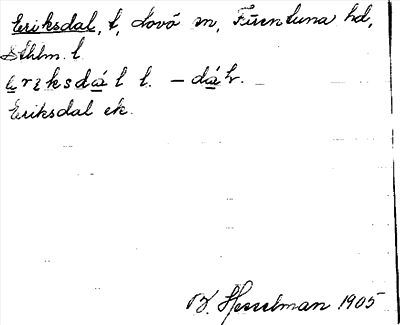 Eriksdal, t, Lovö sn, Färentuna hd,
Sthlm. l
eriksdál l. -dáh.
Eriksdal ek.
B. Hesselman 1905